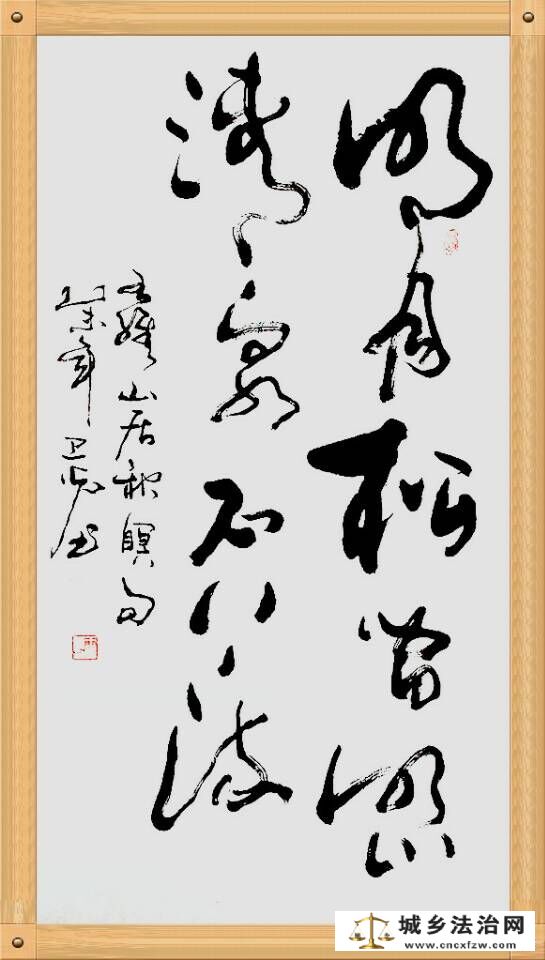 明月松間照
清泉石上流
王維山居秋暝句
乙未年 书
城乡法治网
www.cncxfzw.com